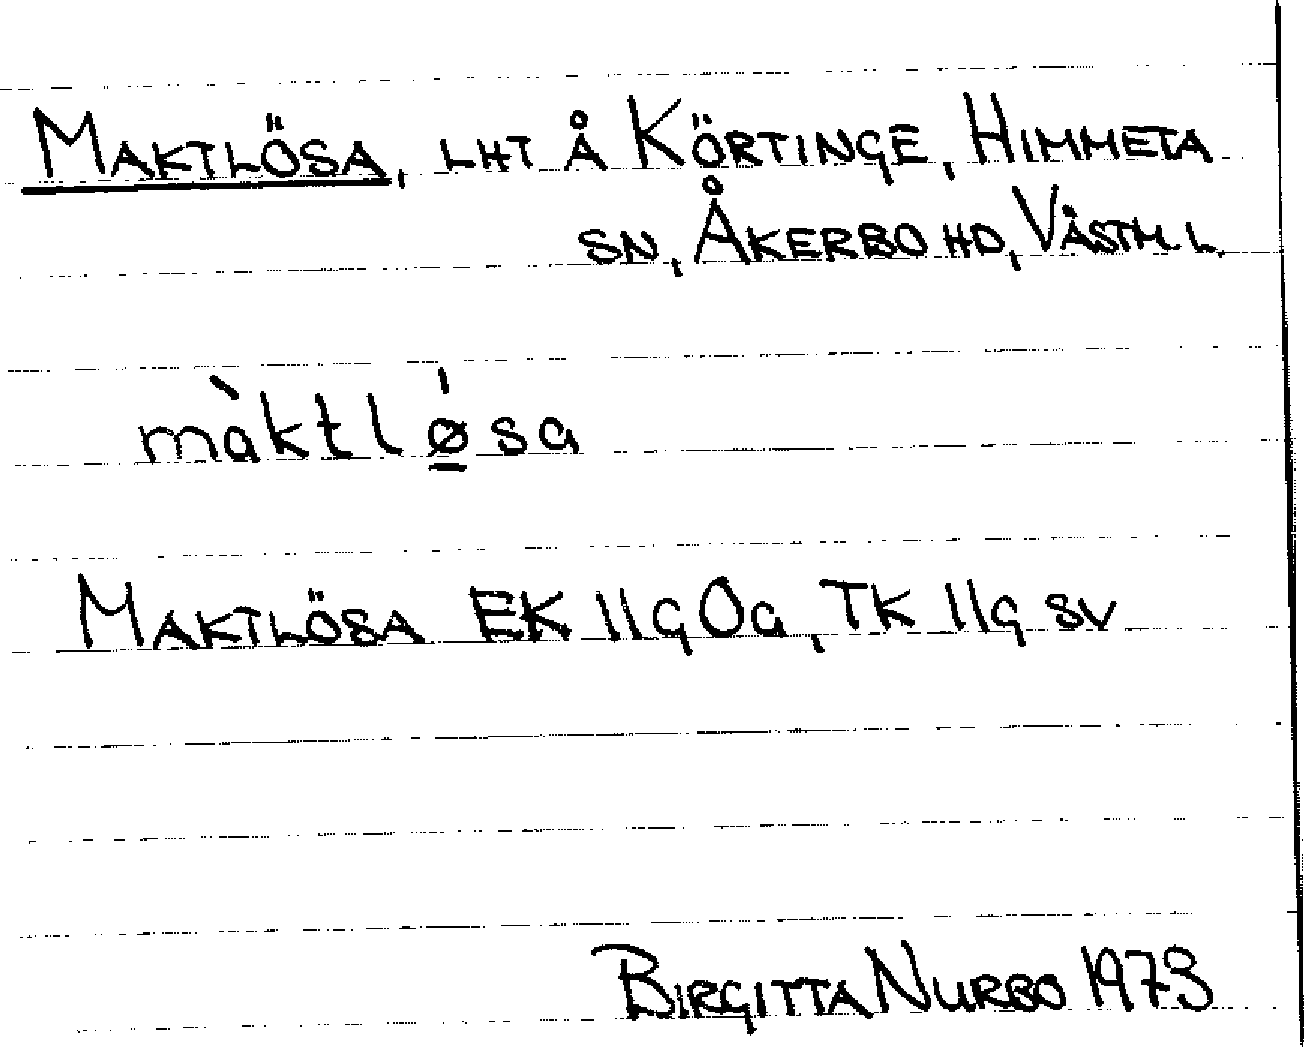 MAKTLÖSA, LHT Å KÖRTINGE, HIMMETA
SN, ÅKERBO HD, VÄSTM. L.
màktlǿ̲sa
MAKTLÖSA EK 11G0a, TK 11G SV
BIRGITTA NURBO 1973